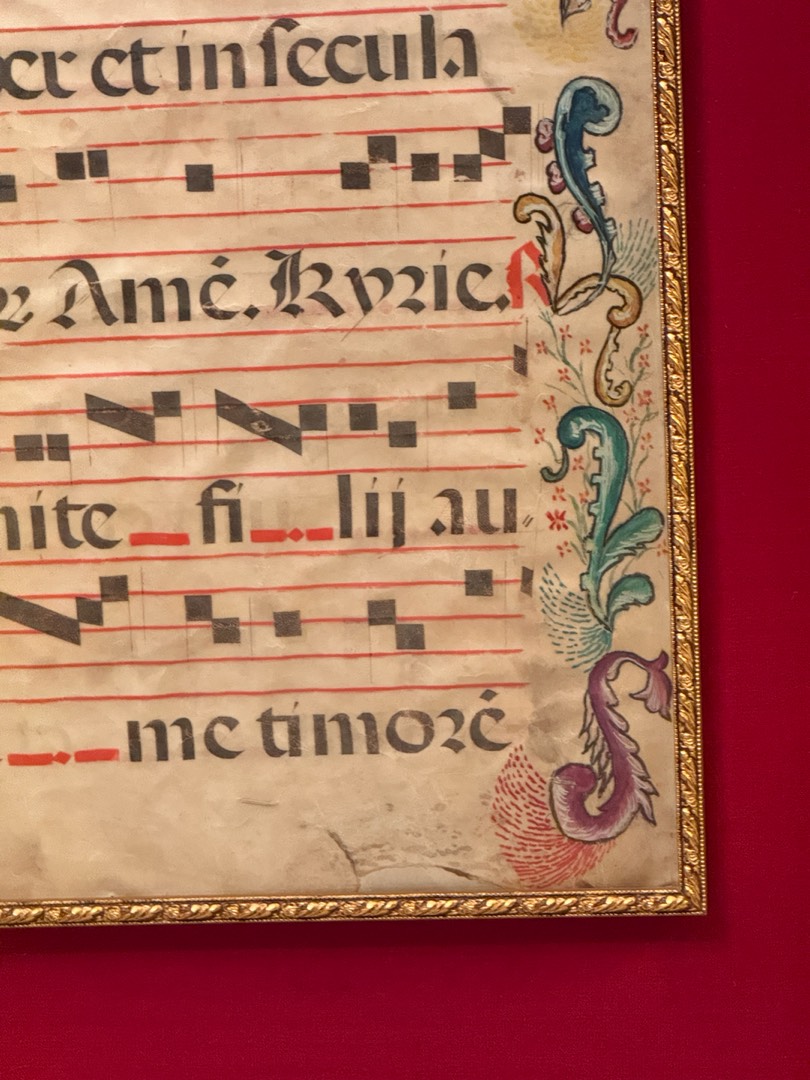 et in secula
Amē. Kyrie. R
nite fi lij au
me timorē